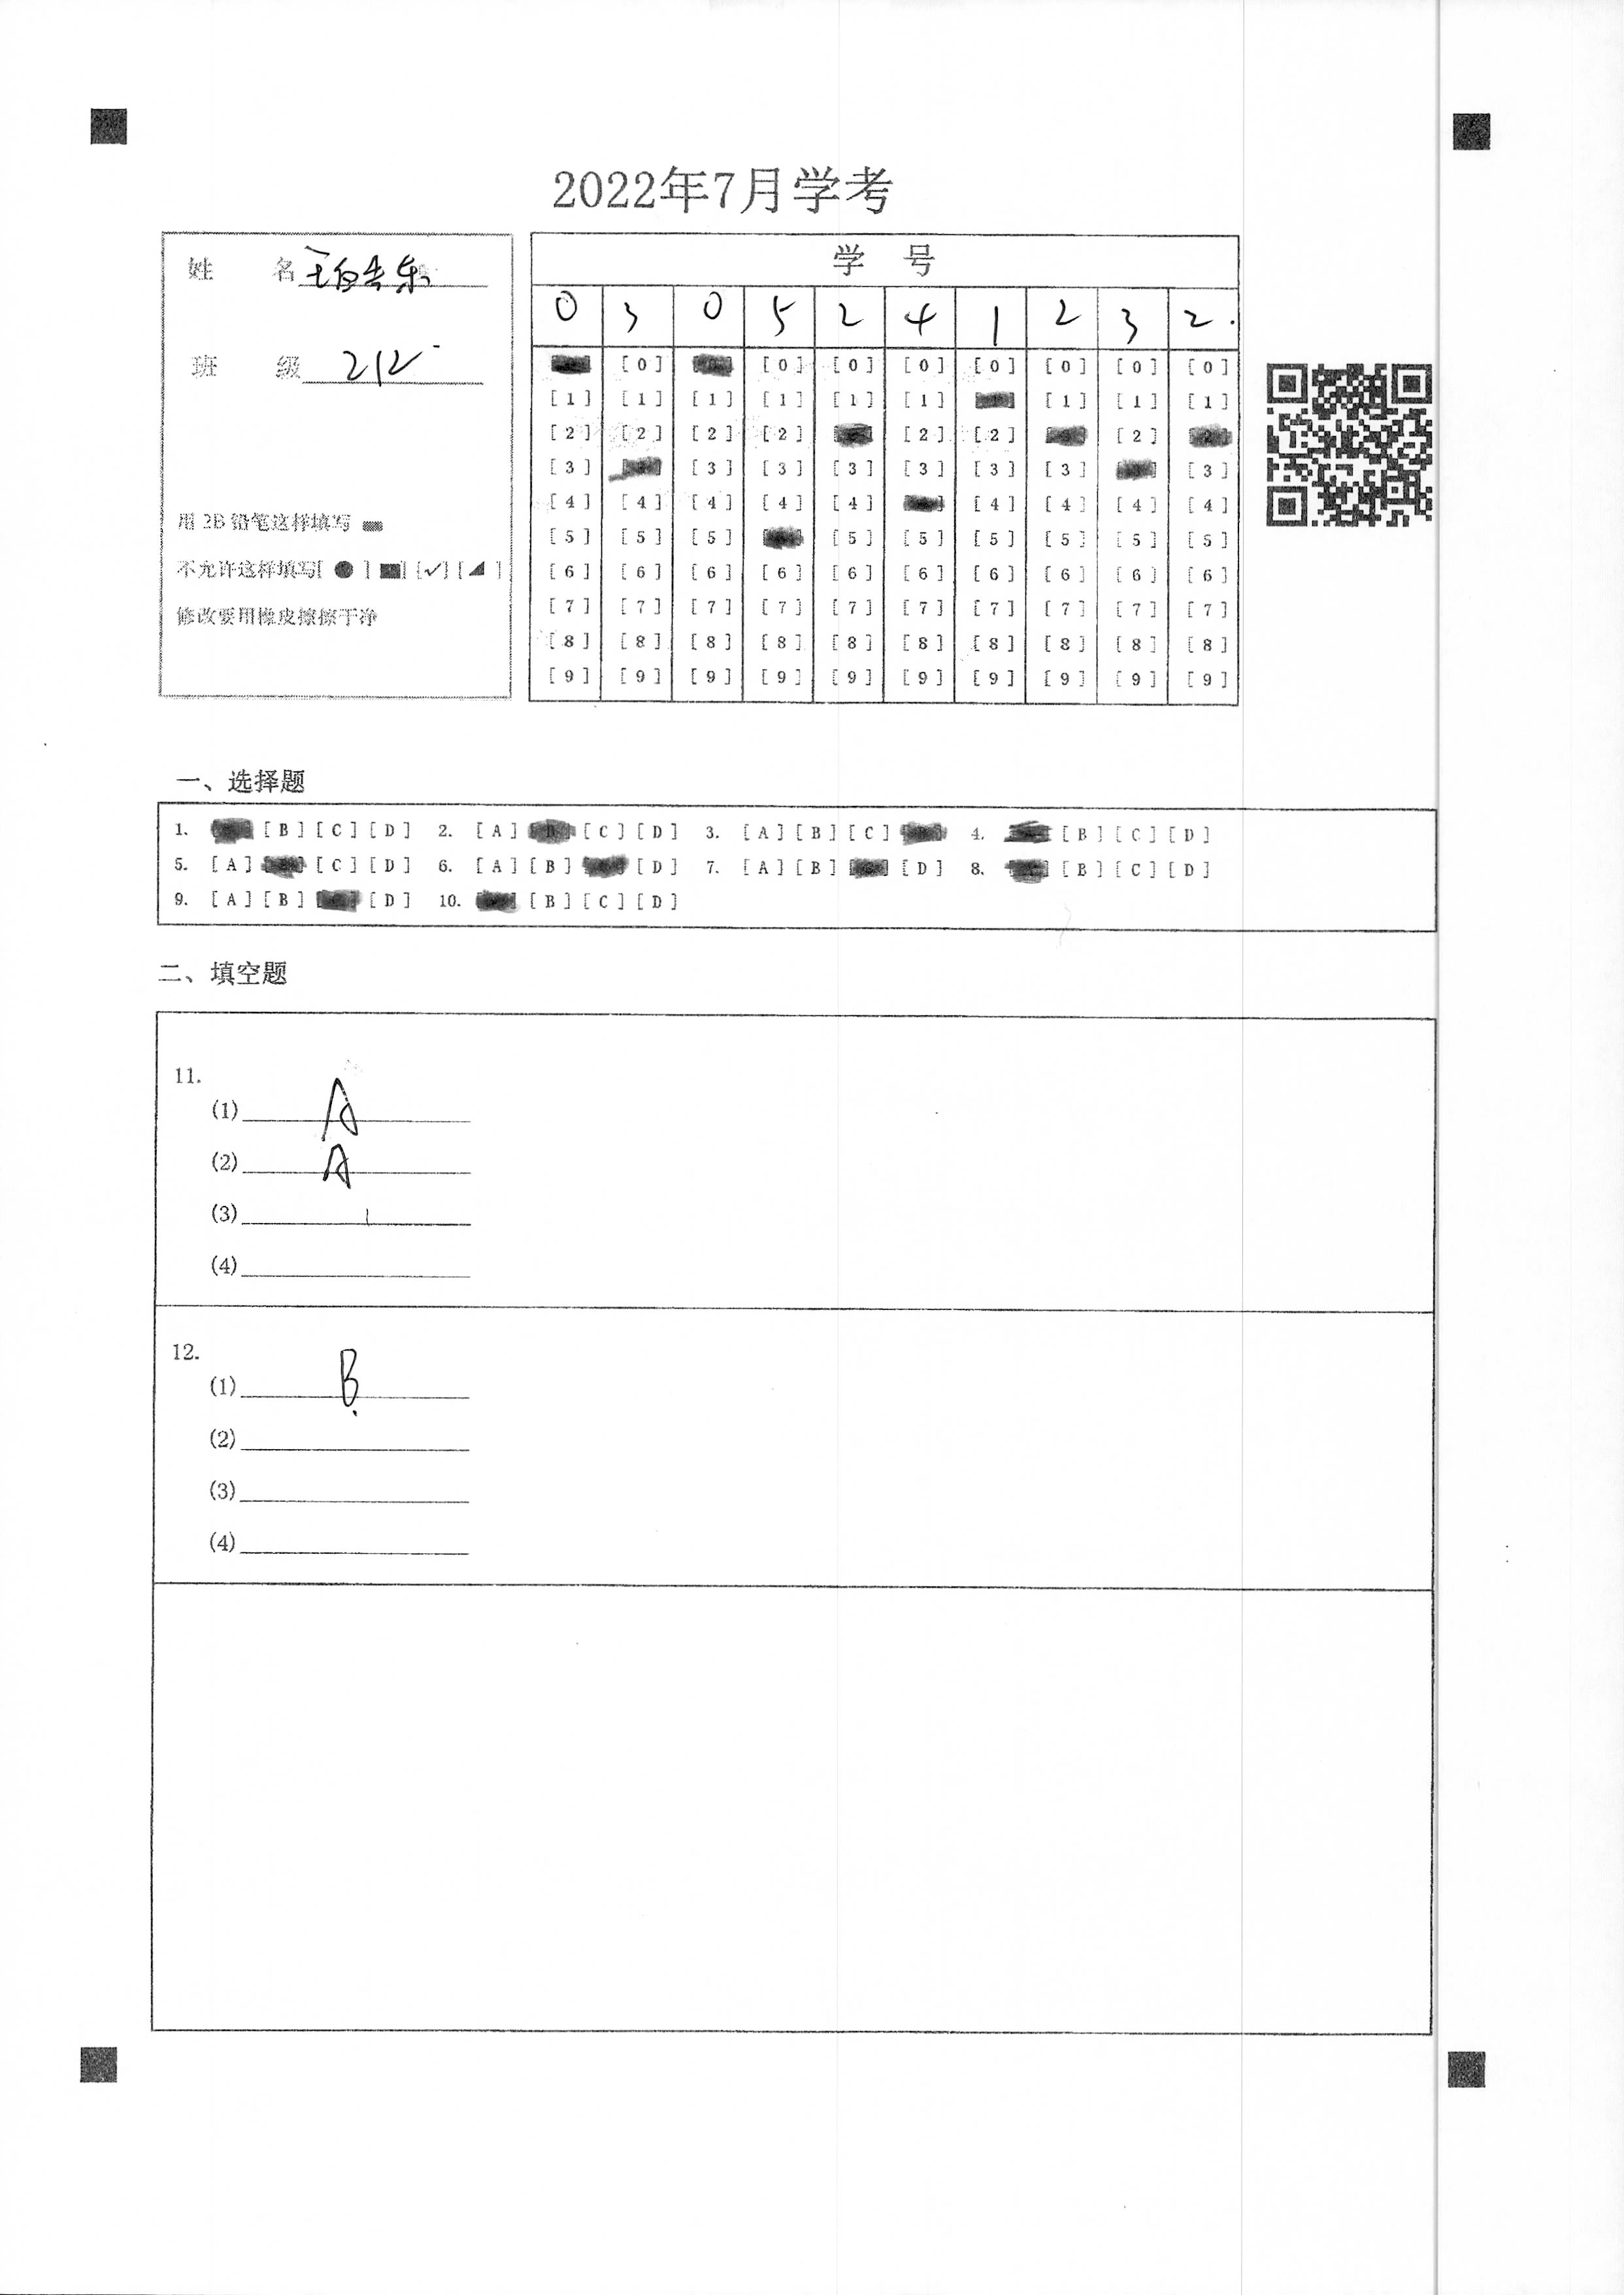 2022年7月学考
姓 名
班 级 212
用 2B 铅笔这样填写
不允许这样填写[ ● ] [■] [✓] [◢ ]
修改要用橡皮擦擦干净
学 号
0 3 0 5 2 4 1 2 3 2.
[0] [0] [0] [0] [0] [0] [0] [0]
[1] [1] [1] [1] [1] [1] [1] [1] [1]
[2] [2] [2] [2] [2] [2] [2]
[3] [3] [3] [3] [3] [3] [3] [3]
[4] [4] [4] [4] [4] [4] [4] [4] [4]
[5] [5] [5] [5] [5] [5] [5] [5] [5]
[6] [6] [6] [6] [6] [6] [6] [6] [6] [6]
[7] [7] [7] [7] [7] [7] [7] [7] [7] [7]
[8] [8] [8] [8] [8] [8] [8] [8] [8] [8]
[9] [9] [9] [9] [9] [9] [9] [9] [9] [9]
一、选择题
1. [B] [C] [D] 2. [A] [C] [D] 3. [A] [B] [C] 4. [B] [C] [D]
5. [A] [C] [D] 6. [A] [B] [D] 7. [A] [B] [D] 8. [B] [C] [D]
9. [A] [B] [D] 10. [B] [C] [D]
二、填空题
11.
(1) A
(2) A
(3)
(4)
12.
(1) B.
(2)
(3)
(4)